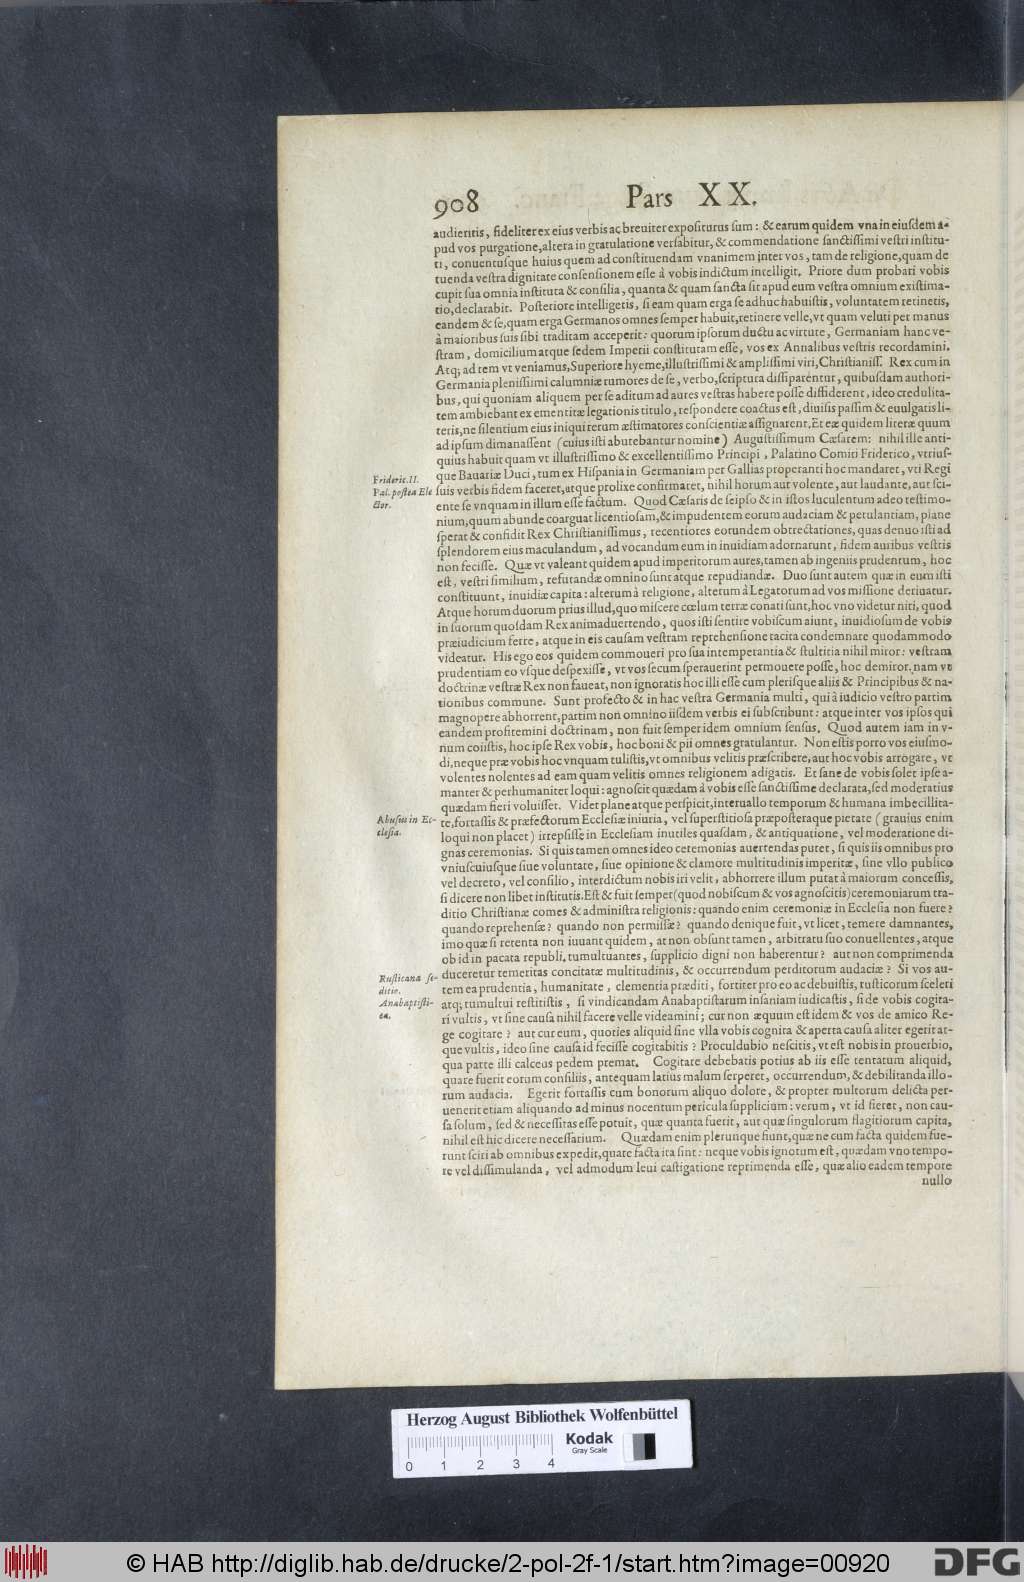 908 Pars XX.
audientis, fideliter ex eius verbis ac breuiter expositurus sum: & earum quidem vna in eiusdem a-
pud vos purgatione, altera in gratulatione versabitur, & commendatione sanctissimi vestri institu-
ti, conuentusque huius quem ad constituendam vnanimem inter vos, tam de religione, quam de
tuenda vestra dignitate consensionem esse à vobis indictum intelligit. Priore dum probari vobis
cupit sua omnia instituta & consilia, quanta & quam sancta sit apud eum vestra omnium existima-
tio, declarabit. Posteriore intelligetis, si eam quam erga se adhuc habuistis, voluntatem retinetis,
eandem & se, quam erga Germanos omnes semper habuit, retinere velle, vt quam veluti per manus
à maioribus suis sibi traditam acceperit: quorum ipsorum ductu ac virtute, Germaniam hanc ve-
stram, domicilium atque sedem Imperii constitutam esse, vos ex Annalibus vestris recordamini.
Atq; ad rem vt veniamus, Superiore hyeme, illustrissimi & amplissimi viri, Christianiss. Rex cum in
Germania plenissimi calumniæ rumores de se, verbo, scriptura dissiparentur, quibusdam authori-
bus, qui quoniam aliquem per se aditum ad aures vestras habere posse diffiderent, ideo credulita-
tem ambiebant ex ementitæ legationis titulo, respondere coactus est, diuisis passim & euulgatis li-
teris, ne silentium eius iniqui rerum æstimatores conscientiæ assignarent, Et eæ quidem literæ quum
ad ipsum dimanassent (cuius isti abutebantur nomine) Augustissimum Cæsarem: nihil ille anti-
quius habuit quam vt illustrissimo & excellentissimo Principi, Palatino Comiti Friderico, vtrius-
Frideric. II.
Pal. postea Ele
ctor.
que Bauariæ Duci, tum ex Hispania in Germaniam per Gallias properanti hoc mandaret, vti Regi
suis verbis fidem faceret, atque prolixe confirmaret, nihil horum aut volente, aut laudante, aut sci-
ente se vnquam in illum esse factum. Quod Cæsaris de seipso & in istos luculentum adeo testimo-
nium, quum abunde coarguat licentiosam, & impudentem eorum audaciam & petulantiam, plane
sperat & confidit Rex Christianissimus, recentiores eorundem obtrectationes, quas denuo isti ad
splendorem eius maculandum, ad vocandum eum in inuidiam adornarunt, fidem auribus vestris
non fecisse. Quæ vt valeant quidem apud imperitorum aures, tamen ab ingeniis prudentum, hoc
est, vestri similium, refutandæ omnino sunt atque repudiandæ. Duo sunt autem quæ in eum isti
constituunt, inuidiæ capita: alterum à religione, alterum à Legatorum ad vos missione deriuatur.
Atque horum duorum prius illud, quo miscere cœlum terræ conati sunt, hoc vno videtur niti, quod
in suorum quosdam Rex animaduertendo, quos isti sentire vobiscum aiunt, inuidiosum de vobis
præiudicium ferre, atque in eis causam vestram reprehensione tacita condemnare quodammodo
videatur. His ego eos quidem commoueri pro sua intemperantia & stultitia nihil miror: vestram
prudentiam eo vsque despexisse, vt vos secum sperauerint permouere posse, hoc demiror. nam vt
doctrinæ vestræ Rex non faueat, non ignoratis hoc illi esse cum plerisque aliis & Principibus & na-
tionibus commune. Sunt profecto & in hac vestra Germania multi, qui à iudicio vestro partim
magnopere abhorrent, partim non omnino iisdem verbis ei subscribunt: atque inter vos ipsos qui
eandem profitemini doctrinam, non fuit semper idem omnium sensus. Quod autem iam in v-
num coiistis, hoc ipse Rex vobis, hoc boni & pii omnes gratulantur. Non estis porro vos eiusmo-
di, neque præ vobis hoc vnquam tulistis, vt omnibus velitis præscribere, aut hoc vobis arrogare, vt
volentes nolentes ad eam quam velitis omnes religionem adigatis. Et sane de vobis solet ipse a-
manter & perhumaniter loqui: agnoscit quædam à vobis esse sanctissime declarata, sed moderatius
quædam fieri voluisset. Videt plane atque perspicit, interuallo temporum & humana imbecillita-
Abusus in Ec-
clesia.
te, fortassis & præfectorum Ecclesiæ iniuria, vel superstitiosa præposteraque pietate (grauius enim
loqui non placet) irrepsisse in Ecclesiam inutiles quasdam, & antiquatione, vel moderatione di-
gnas ceremonias. Si quis tamen omnes ideo ceremonias auertendas putet, si quis iis omnibus pro
vniuscuiusque siue voluntate, siue opinione & clamore multitudinis imperitæ, sine vllo publico
vel decreto, vel consilio, interdictum nobis iri velit, abhorrere illum putat à maiorum concessis,
si dicere non libet institutis. Est & fuit semper (quod nobiscum & vos agnoscitis) ceremoniarum tra-
ditio Christianæ comes & administra religionis: quando enim ceremoniæ in Ecclesia non fuere?
quando reprehensæ? quando non permissæ? quando denique fuit, vt licet, temere damnantes,
imo quæ si retenta non iuuant quidem, at non obsunt tamen, arbitratu suo conuellentes, atque
ob id in pacata republi. tumultuantes, supplicio digni non haberentur? aut non comprimenda
Rusticana se-
ditio.
Anabaptisti-
ca.
duceretur temeritas concitatæ multitudinis, & occurrendum perditorum audaciæ? Si vos au-
tem ea prudentia, humanitate, clementia præditi, fortiter pro eo ac debuistis, rusticorum sceleri
atq; tumultui restitistis, si vindicandam Anabaptistarum insaniam iudicastis, si de vobis cogita-
ri vultis, vt sine causa nihil facere velle videamini; cur non æquum est idem & vos de amico Re-
ge cogitare? aut cur eum, quoties aliquid sine vlla vobis cognita & aperta causa aliter egerit at-
que vultis, ideo sine causa id fecisse cogitabitis? Proculdubio nescitis, vt est nobis in prouerbio,
qua parte illi calceus pedem premat. Cogitare debebatis potius ab iis esse tentatum aliquid,
quare fuerit eorum consiliis, antequam latius malum serperet, occurrendum, & debilitanda illo-
rum audacia. Egerit fortassis cum bonorum aliquo dolore, & propter multorum delicta per-
uenerit etiam aliquando ad minus nocentum pericula supplicium: verum, vt id fieret, non cau-
sa solum, sed & necessitas esse potuit, quæ quanta fuerit, aut quæ singulorum flagitiorum capita,
nihil est hic dicere necessarium. Quædam enim plerunque fiunt, quæ ne cum facta quidem fue-
runt sciri ab omnibus expedit, quare facta ita sint: neque vobis ignotum est, quædam vno tempo-
re vel dissimulanda, vel admodum leui castigatione reprimenda esse, quæ alio eadem tempore
nullo
Herzog August Bibliothek Wolfenbüttel
0 1 2 3 4
Kodak
Gray Scale
© HAB http://diglib.hab.de/drucke/2-pol-2f-1/start.htm?image=00920
DFG